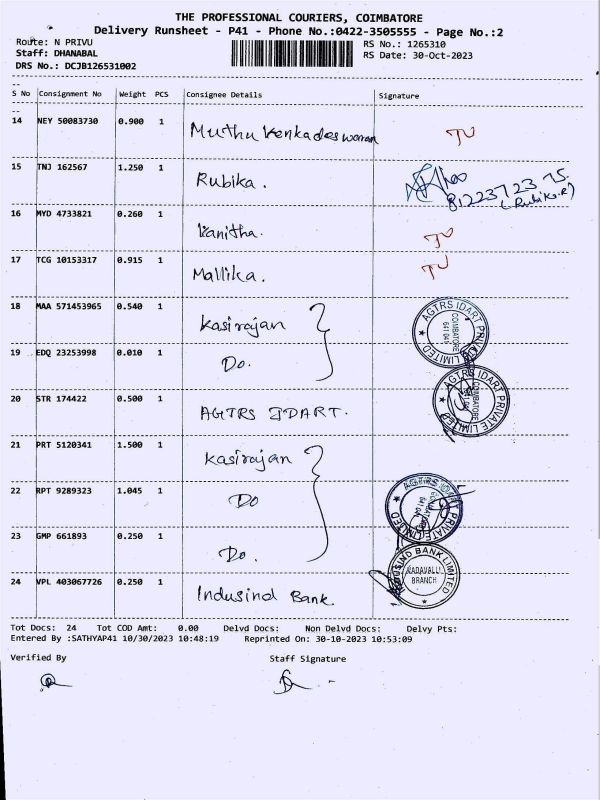 THE PROFESSIONAL COURIERS, COIMBATORE
Delivery Runsheet - P41 - Phone No.:0422-3505555 - Page No.:2
Route: N PRIVU
RS No.: 1265310
Staff: DHANABAL
RS Date: 30-Oct-2023
DRS No.: DCJB126531002
S No Consignment No Weight PCS Consignee Details Signature
14 NEY 50083730 0.900 1 Muthu Venkadeswaran TU
15 TNJ 162567 1.250 1 Rubika.
8122372375.
(Rubika.R)
16 MYD 4733821 0.260 1 Vanitha. TU
17 TCG 10153317 0.915 1 Mallika. TU
18 MAA 571453965 0.540 1 Kasirajan
AGTRS IDART PRIVATE LIMITED
COIMBATORE
641 041
19 EDQ 23253998 0.010 1 Do.
20 STR 174422 0.500 1 AGTRS IDART.
AGTRS IDART PRIVATE LIMITED
COIMBATORE
641 041
21 PRT 5120341 1.500 1 Kasirajan
22 RPT 9289323 1.045 1 Do
AGTRS IDART PRIVATE LIMITED
COIMBATORE
641 041
23 GMP 661893 0.250 1 Do.
24 VPL 403067726 0.250 1 Indusind Bank.
INDUSIND BANK LIMITED
VADAVALLI
BRANCH
Tot Docs: 24 Tot COD Amt: 0.00 Delvd Docs: Non Delvd Docs: Delvy Pts:
Entered By :SATHYAP41 10/30/2023 10:48:19 Reprinted On: 30-10-2023 10:53:09
Verified By Staff Signature